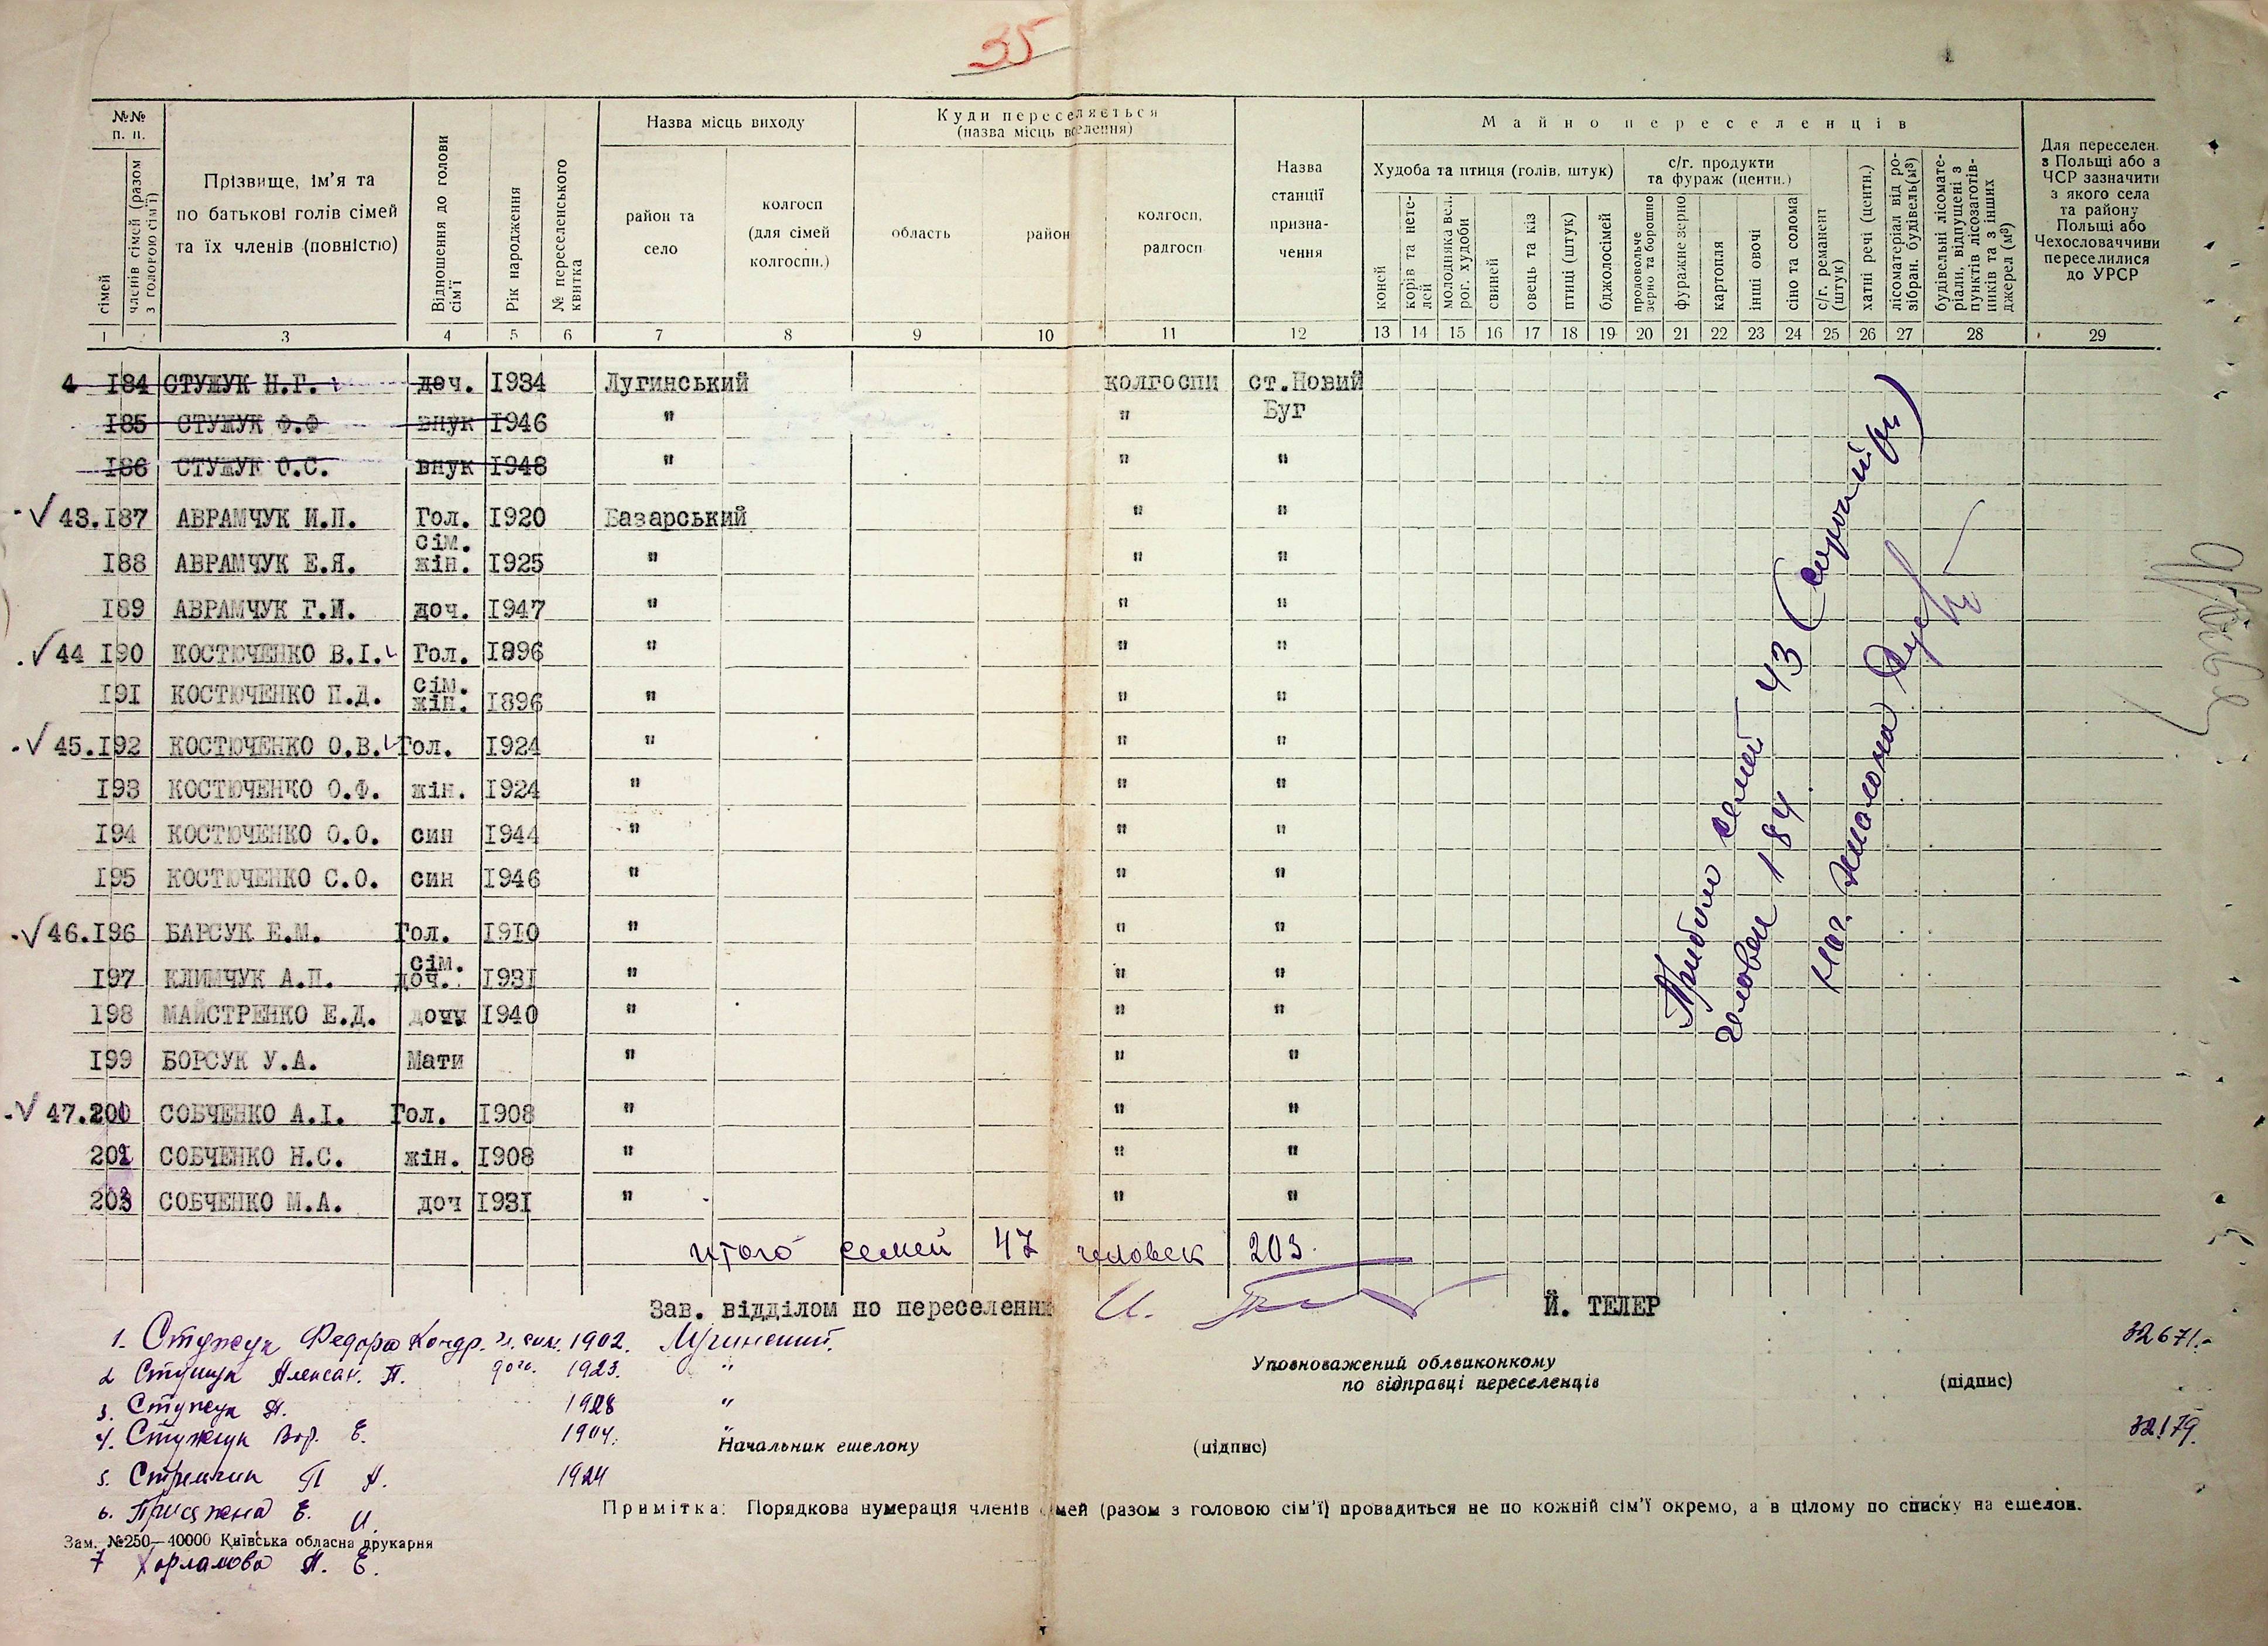 35
№№ п. п.
сімей
членів сімей (разом з головою сім'ї)
Прізвище, ім'я та по батькові голів сімей та їх членів (повністю)
Відношення до голови сім'ї
Рік народження
№ переселенського квитка
Назва місць виходу
район та село
колгосп (для сімей колгоспн.)
Куди переселяється (назва місць вселення)
область
район
колгосп, радгосп
Назва станції призначення
Майно переселенців
Худоба та птиця (голів, штук)
коней
корів та нетелей
молодняка вел. рог. худоби
свиней
овець та кіз
птиці (штук)
бджолосімей
с/г. продукти та фураж (центн.)
продовольче зерно та борошно
фуражне зерно
картопля
інші овочі
сіно та солома
с/г. реманент (штук)
хатні речі (центн.)
лісоматеріал від розібран. будівель (м³)
будівельні лісоматеріали, відпущені з пунктів лісозаготівників та з інших джерел (м³)
Для переселен. з Польщі або з ЧСР зазначити з якого села та району Польщі або Чехословаччини переселилися до УРСР
1 2 3 4 5 6 7 8 9 10 11 12 13 14 15 16 17 18 19 20 21 22 23 24 25 26 27 28 29
4 184 СТУЖУК Н.Г. доч. 1934 Лугинський колгоспи ст.Новий Буг
185 СТУЖУК Ф.Ф внук 1946 " "
186 СТУЖУК О.С. внук 1948 " " "
43.187 АВРАМЧУК И.П. Гол. сім. 1920 Базарський " "
188 АВРАМЧУК Е.Я. жін. 1925 " " "
189 АВРАМЧУК Г.И. доч. 1947 " " "
44 190 КОСТЮЧЕНКО В.І. Гол. сім. 1896 " " "
191 КОСТЮЧЕНКО П.Д. жін. 1896 " " "
45.192 КОСТЮЧЕНКО О.В. Гол. 1924 " " "
193 КОСТЮЧЕНКО О.Ф. жін. 1924 " " "
194 КОСТЮЧЕНКО О.О. син 1944 " " "
195 КОСТЮЧЕНКО С.О. син 1946 " " "
46.196 БАРСУК Е.М. Гол. сім. 1910 " " "
197 КЛИМЧУК А.П. доч. 1931 " " "
198 МАЙСТРЕНКО Е.Д. дочч 1940 " " "
199 БОРСУК У.А. Мати " " "
47.200 СОБЧЕНКО А.І. Гол. 1908 " " "
202 СОБЧЕНКО Н.С. жін. 1908 " " "
203 СОБЧЕНКО М.А. доч 1931 " " "
итого семей 47 человек 203.
Прибыло семей 43 (сорок три)
человек 184
Нач. эшелона
Зав. відділом по переселенню Й. ТЕЛЕР
1. Стужук Федора Кондр. 1902. Лугинский.
2 Стужук Алексан. П. доч. 1923. "
3. Стужук А. 1928 "
4. Стужук Вор. Е. 1904. "
5. 1924
6. Е. И.
7 Харламова А. Е.
32671.
32179.
Уповноважений облвиконкому по відправці переселенців
(підпис)
Начальник ешелону
(підпис)
Примітка: Порядкова нумерація членів сімей (разом з головою сім'ї) провадиться не по кожній сім'ї окремо, а в цілому по списку на ешелон.
Зам. №250—40000 Київська обласна друкарня